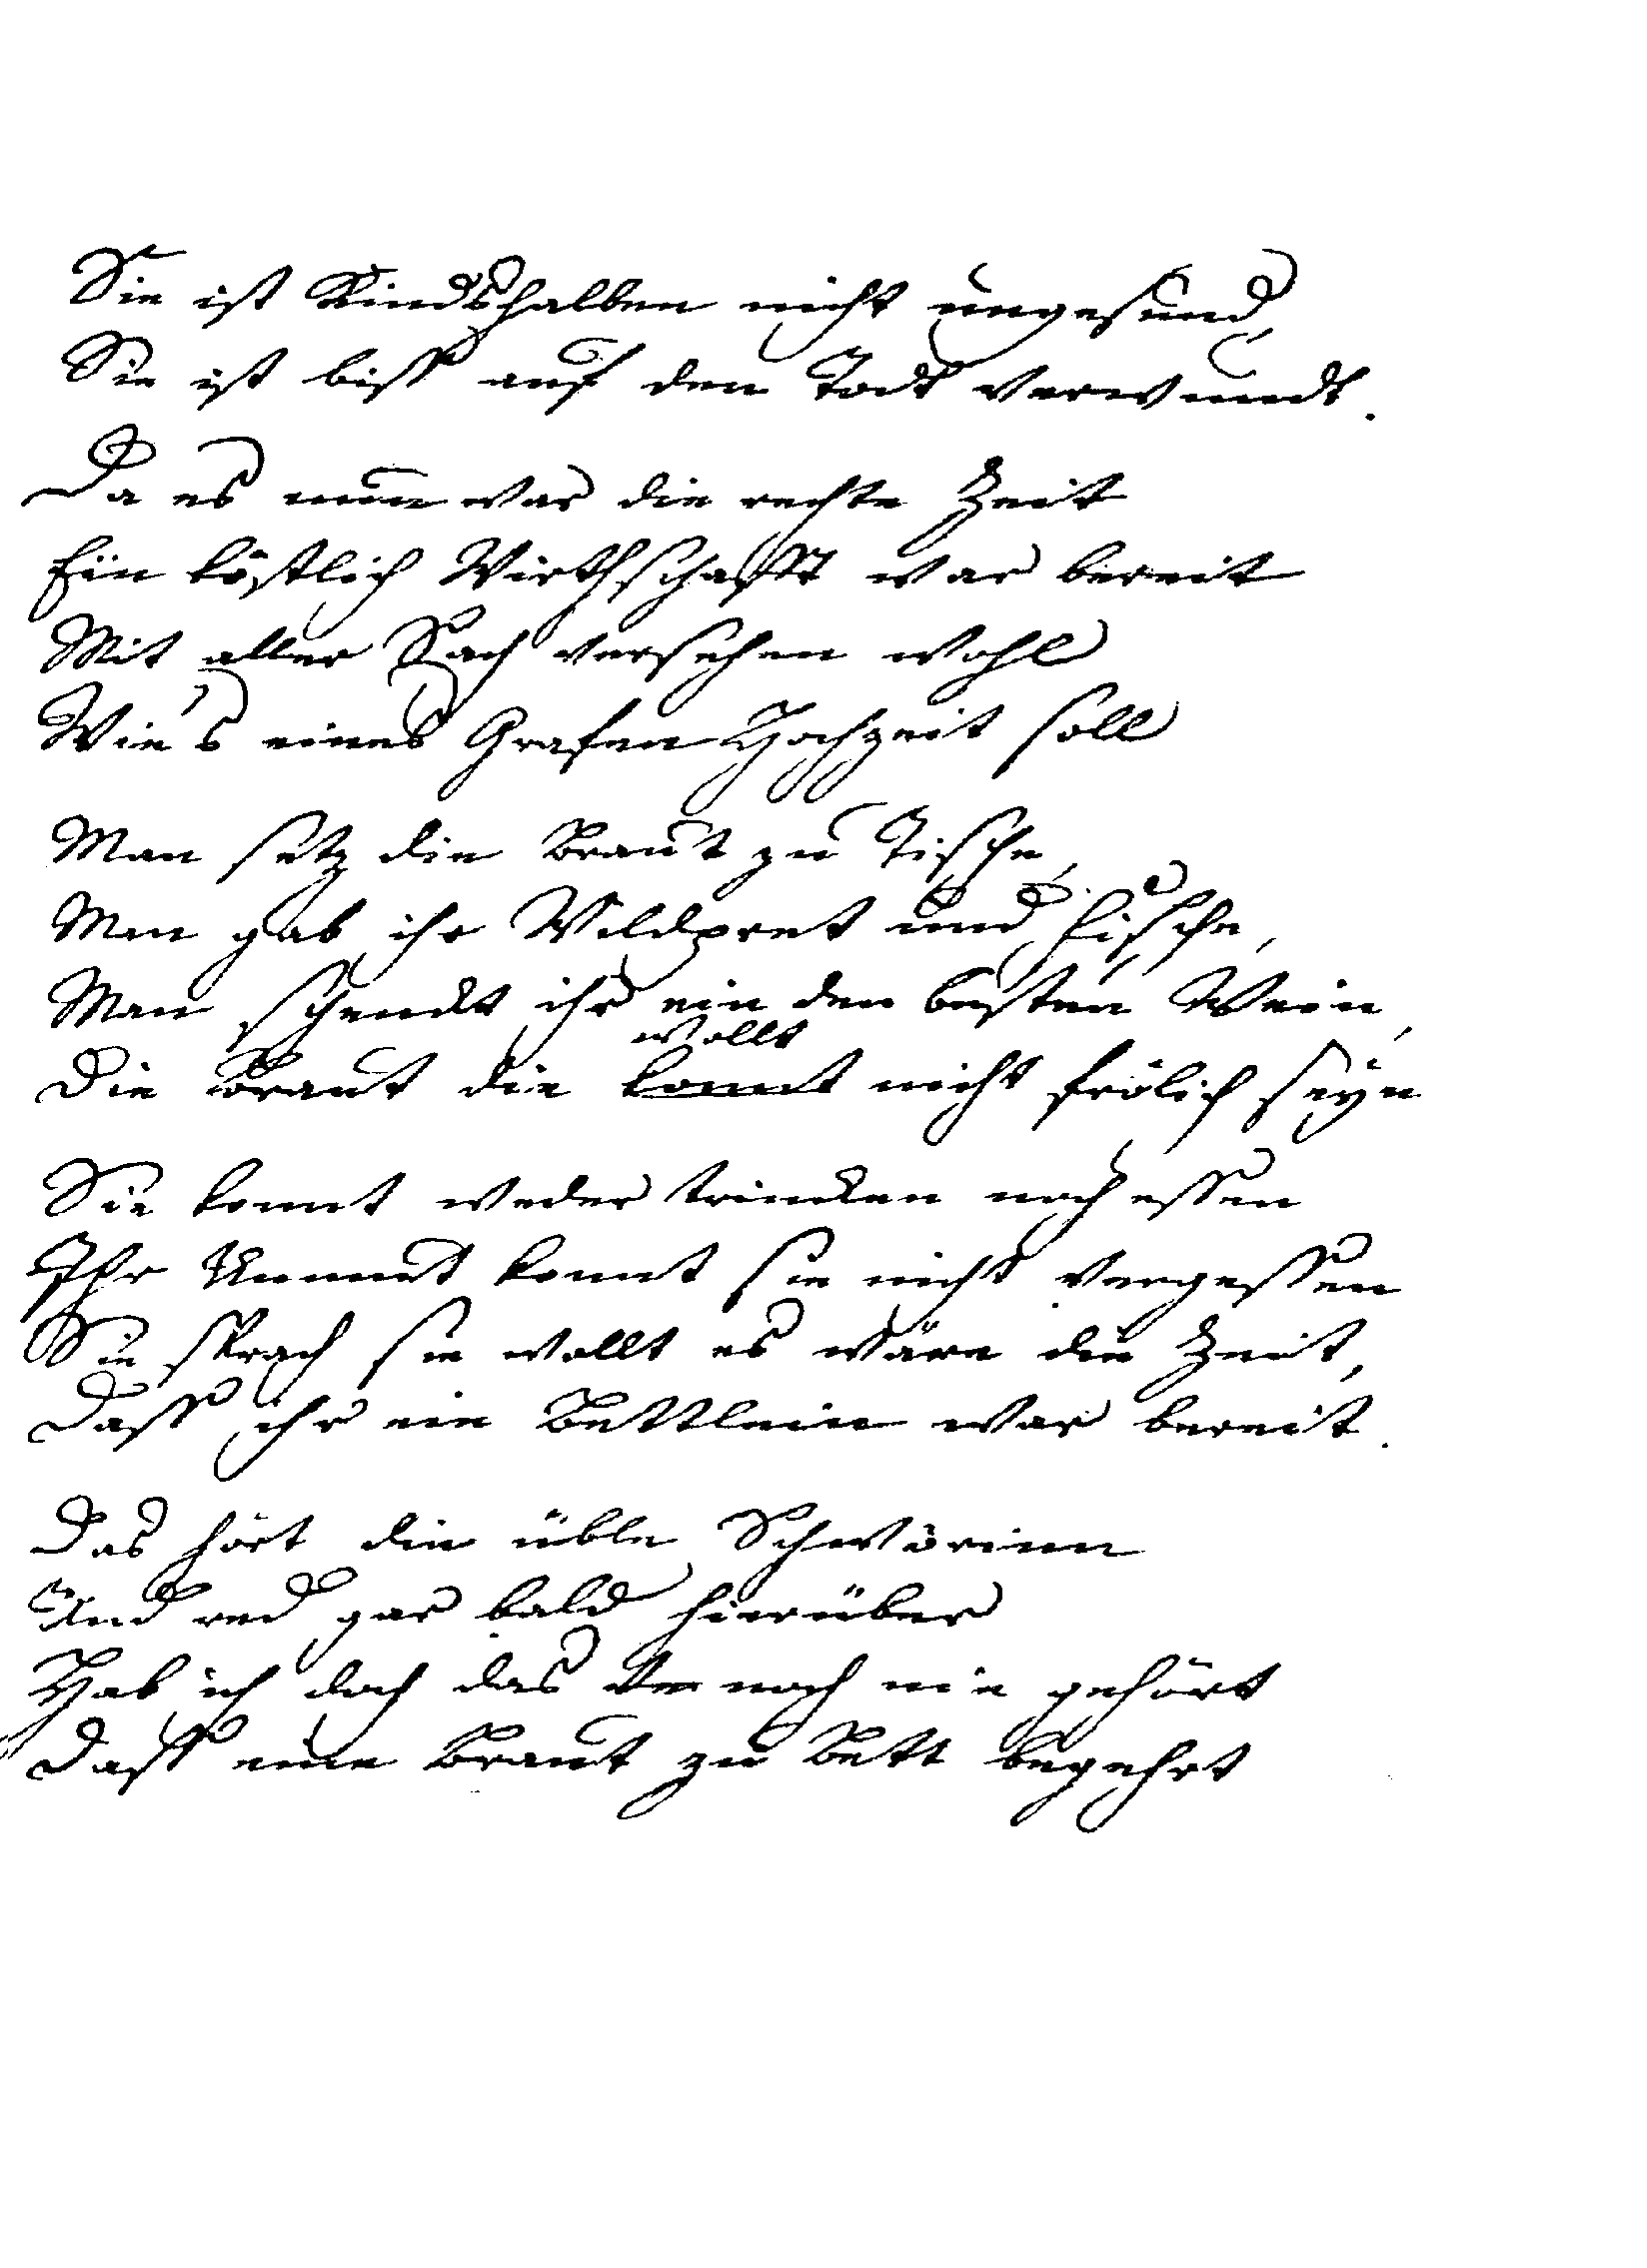 Sie ist Kindshalben nicht ungesund,
Sie ist biss auf den Todt verwundt.
Da es nun war die rechte Zeit
Ein köstlich Wirthschafft war bereit
Mit aller Sach versehen wohl
Wie's eines Grafen Hochzeit soll
Man setz die Braut zu Tische,
Man gab ihr Wildpret und Fische,
Man schenckt ihr ein den besten Wein,
wollt
Die Braut die konnt nicht frölich seyn
Sie konnt weder trincken noch essen
Ihr Unmut konnt sie nicht vergessen
Sie sprach sie wollt es wäre die Zeit,
Dass ihr ein Bettlein war bereit.
Das hört die üble Schwörinn
Und red gar bald hierüber
Hab ich doch das noch nie gehört
Dass eine Braut zu Bett begehrt